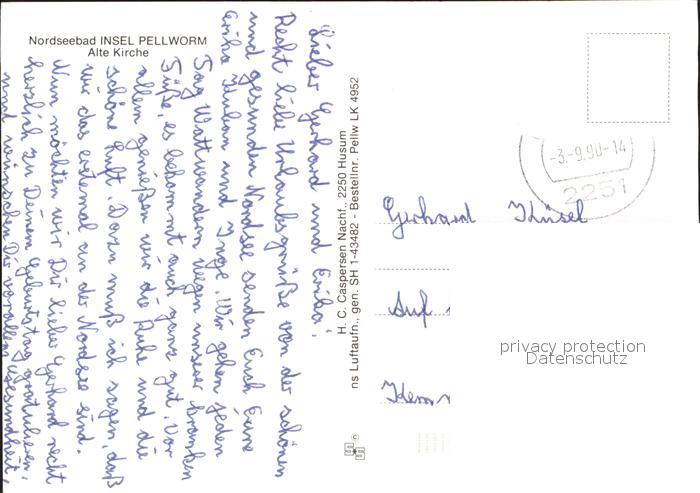 Nordseebad INSEL PELLWORM
Alte Kirche
Lieber Gerhard und Erika!
Recht liebe Urlaubsgrüße von der schönen
und gesunden Nordsee senden Euch Eure
Erika und Inge. Wir gehen jeden
Tag Wattwandern wegen unserer kranken
Füße, es bekommt auch ganz gut. Vor
allem genießen wir die Ruhe und die
schöne Luft. Dazu muß ich sagen, daß
wir das erstemal an der Nordsee sind.
Nun möchten wir Dir lieber Gerhard recht
herzlich zu Deinem Geburtstag gratulieren,
und wünschen Dir vor allem Gesundheit,
H. C. Caspersen Nachf., 2250 Husum
ns Luftaufn., gen. SH 1-43482 - Bestellnr. Pellw LK 4952
-3.-9.90-14
2251
Gerhard
Auf
privacy protection
Datenschutz